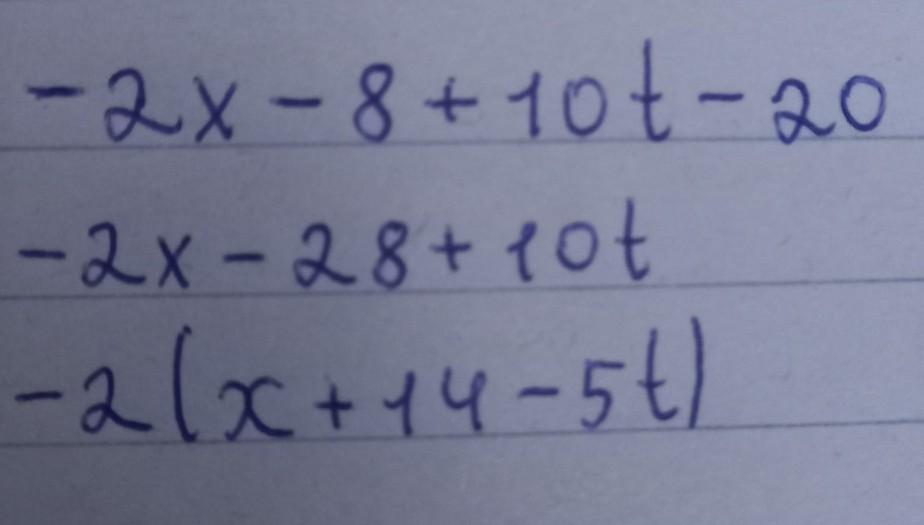 -2x-8+10t-20
-2x-28+10t
-2(x+14-5t)